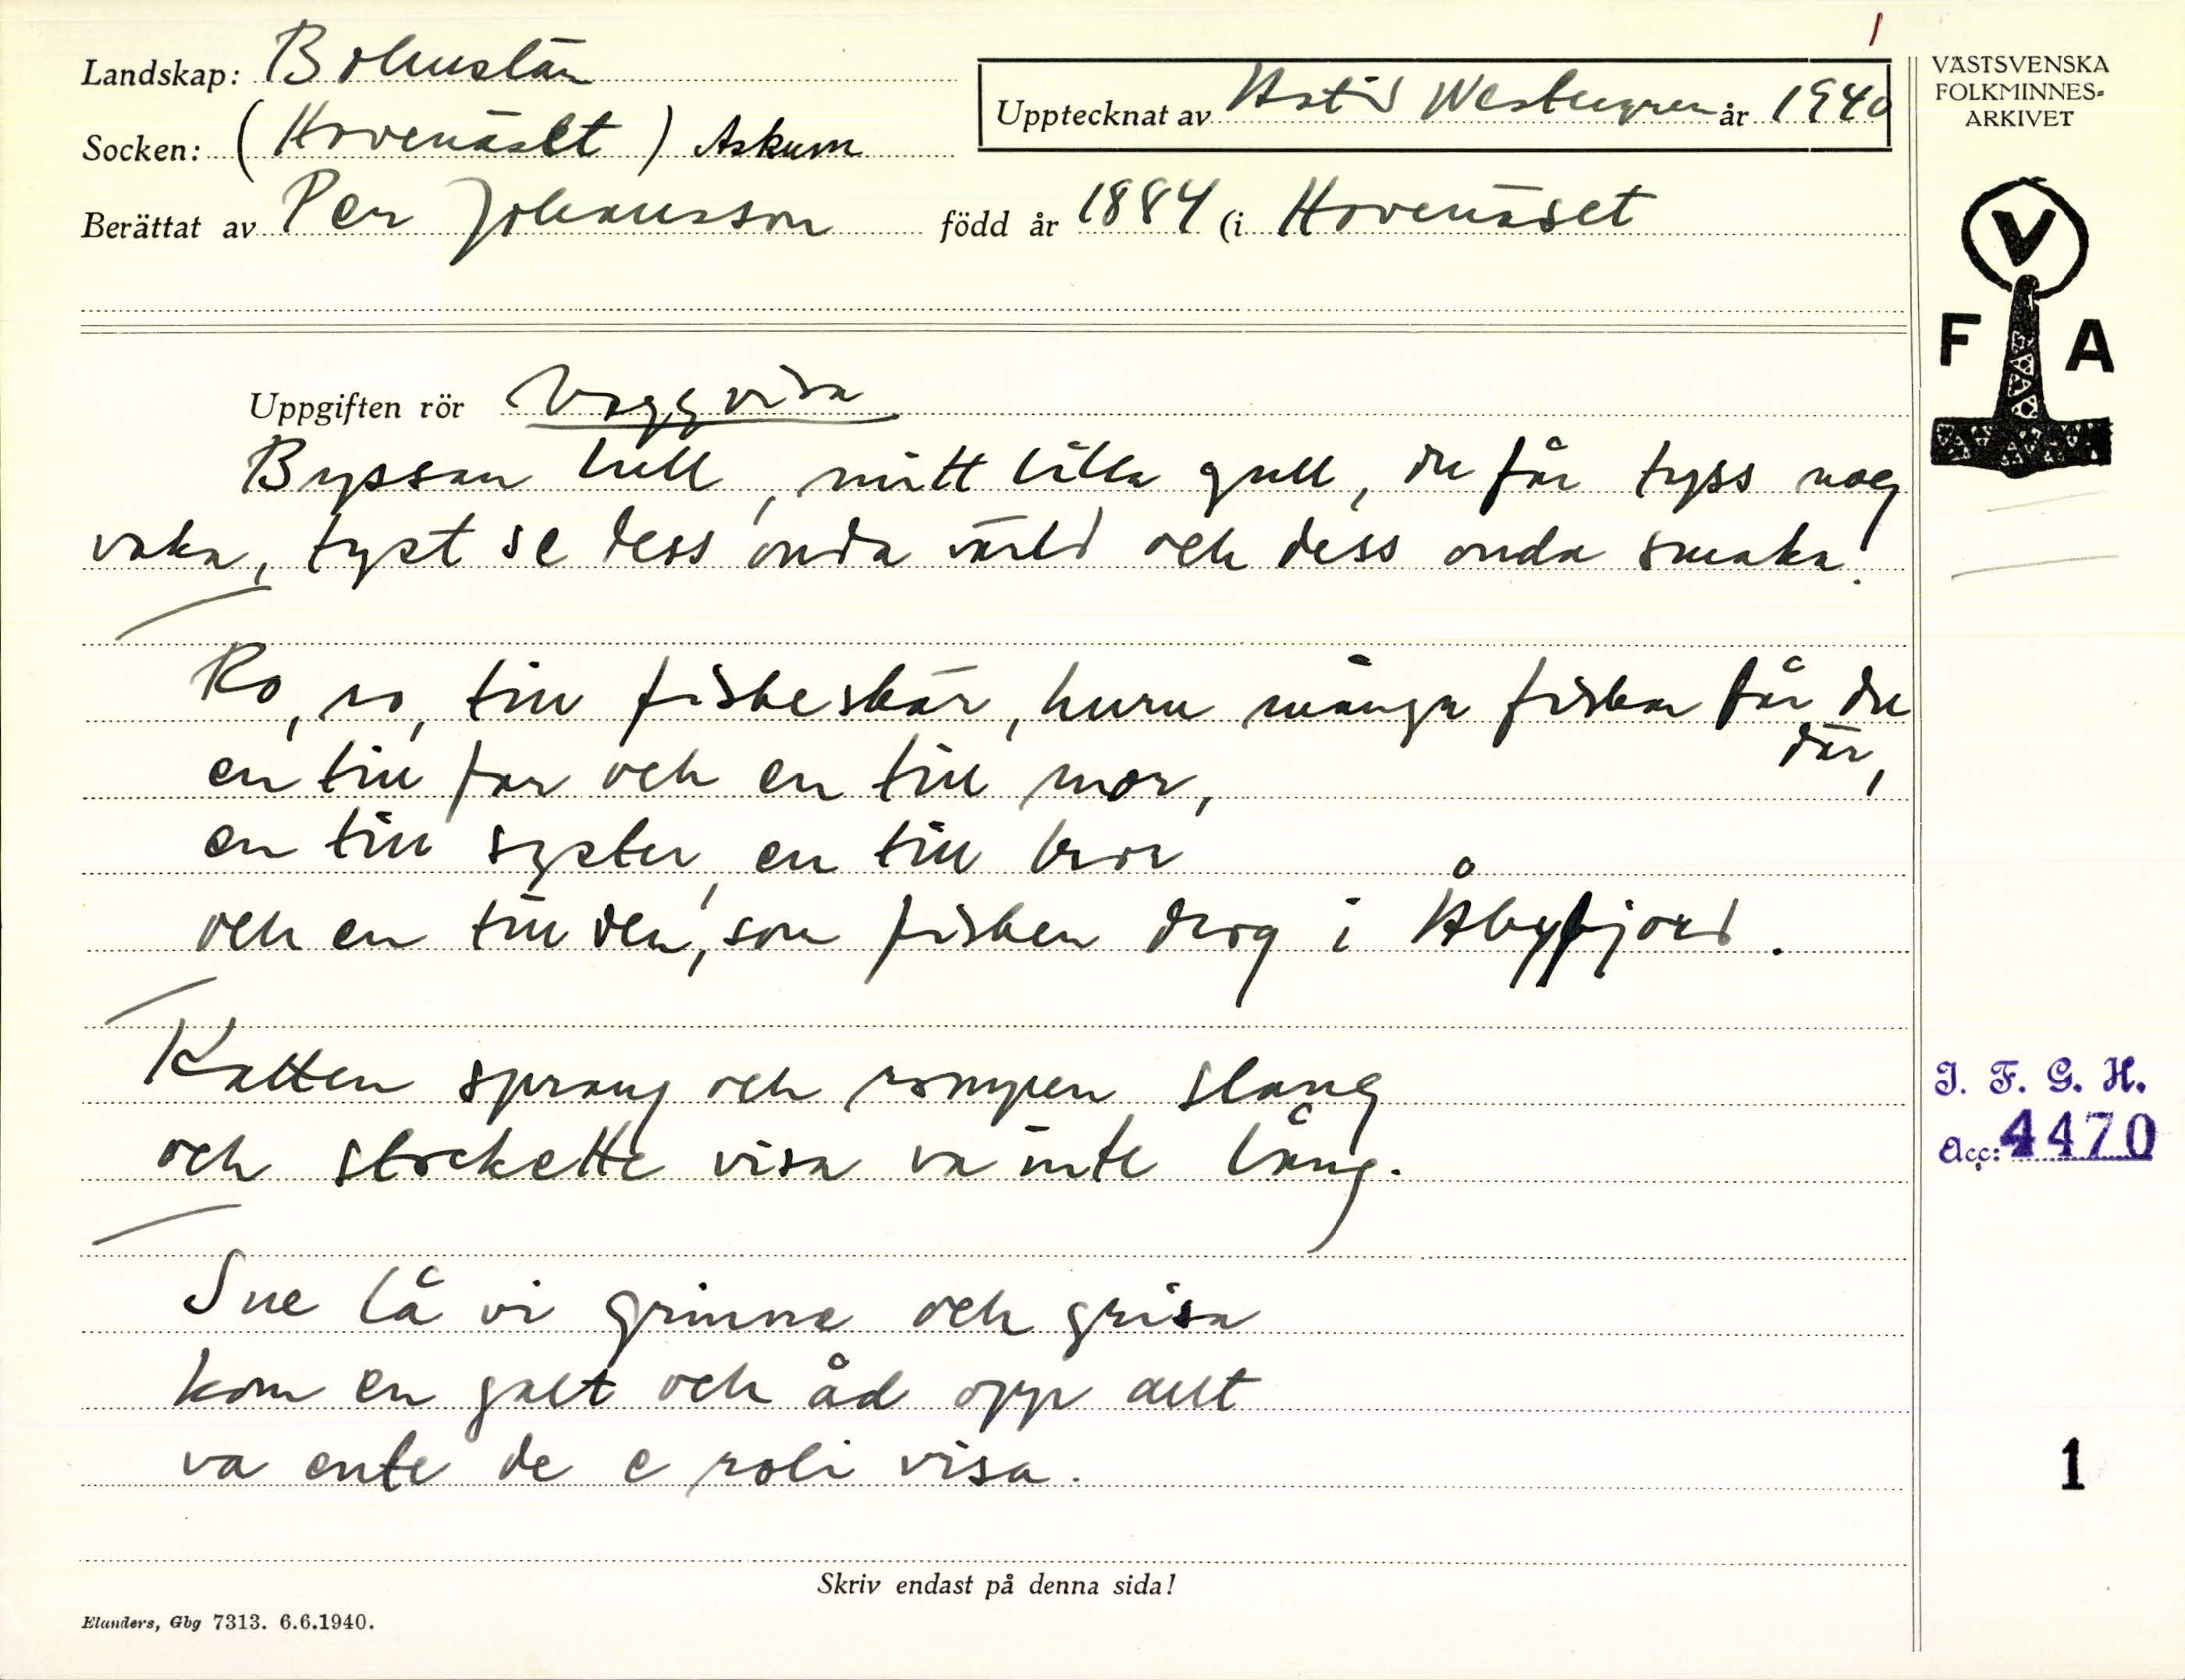 1
Landskap: Bohuslän
Upptecknat av Astrid Westergren år 1940
Socken: (Hovenäset) Askum
Berättat av Per Johansson född år 1884 (i Hovenäset
VÄSTSVENSKA
FOLKMINNES-
ARKIVET
V
F A
Uppgiften rör Vaggvisa
Byssan lull, mitt lilla gull, du får tyss nog
vaka, tyst se dess onda värld och dess onda smaka!
Ro, ro, till fiskeskär, huru många fiskar får du
där,
en till far och en till mor,
en till syster, en till bror
och en till den, som fisken drog i Åbyfjord.
Katten sprang och rompen slang
och stockette visa va inte lång.
Sne lå vi grinne och grisa
kom en galt och åd opp allt
va ente de e roli visa.
I. F. G. H.
Acc: 4470
1
Skriv endast på denna sida!
Elanders, Gbg 7313. 6.6.1940.